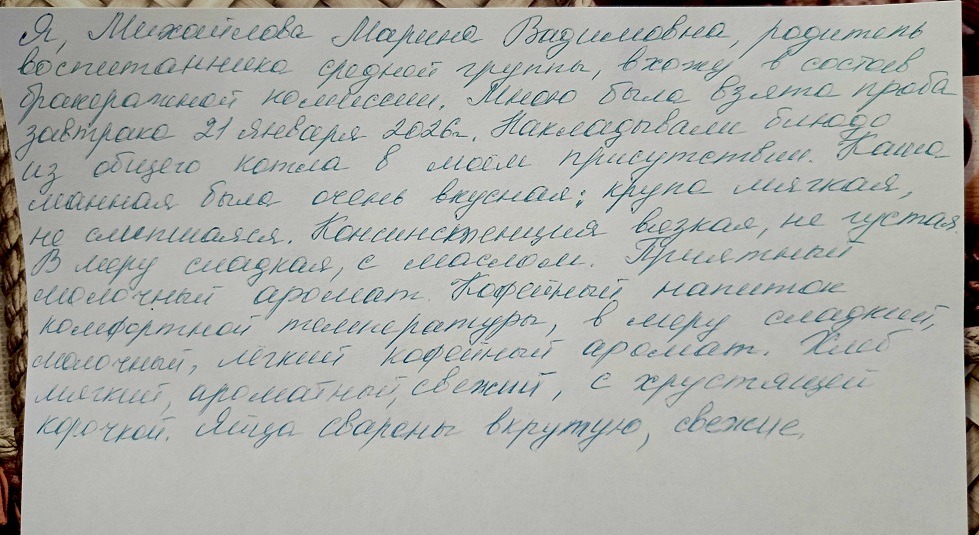 Я, Михайлова Марина Вадимовна, родитель
воспитанника средной группы, вхожу в состав
бракеражной комиссии. Мною была взята проба
завтрака 21 января 2026г. Накладывали блюдо
из общего котла в моём присутствии. Каша
манная была очень вкусная; крупа мягкая,
не слипшаяся. Консинстенция вязкая, не густая.
В меру сладкая, с маслом. Приятный
молочный аромат. Кофейный напиток
комфортной температуры, в меру сладкий,
молочный, лёгкий кофейный аромат. Хлеб
мягкий, ароматный, свежий, с хрустящей
корочкой. Яйца сварены вкрутую, свежие.